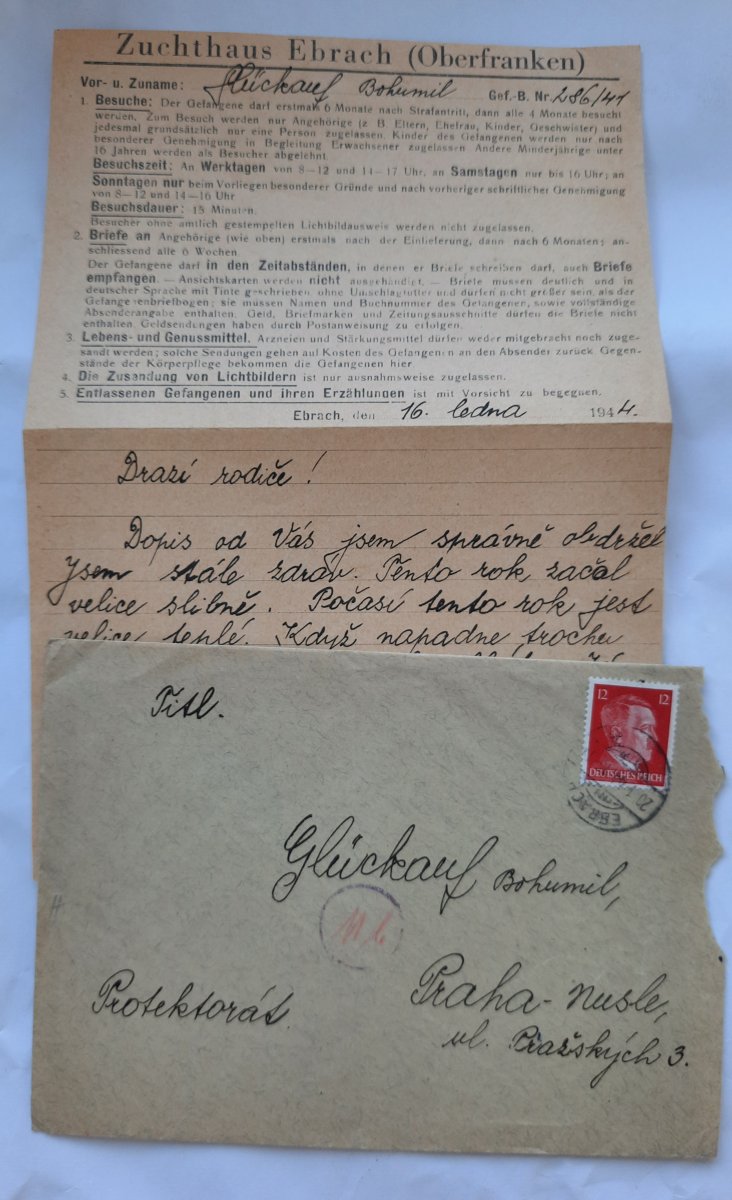 Zuchthaus Ebrach (Oberfranken)
Vor- u. Zuname: Glückauf Bohumil Gef.-B. Nr. 286/41
1. Besuche: Der Gefangene darf erstmals 6 Monate nach Strafantritt, dann alle 4 Monate besucht
werden. Zum Besuch werden nur Angehörige (z. B. Eltern, Ehefrau, Kinder, Geschwister) und
jedesmal grundsätzlich nur eine Person zugelassen. Kinder des Gefangenen werden nur nach
besonderer Genehmigung in Begleitung Erwachsener zugelassen. Andere Minderjährige unter
16 Jahren werden als Besucher abgelehnt.
Besuchszeit: An Werktagen von 8-12 und 14-17 Uhr, an Samstagen nur bis 16 Uhr; an
Sonntagen nur beim Vorliegen besonderer Gründe und nach vorheriger schriftlicher Genehmigung
von 8-12 und 14-16 Uhr
Besuchsdauer: 15 Minuten.
Besucher ohne amtlich gestempelten Lichtbildausweis werden nicht zugelassen.
2. Briefe an Angehörige (wie oben) erstmals nach der Einlieferung, dann nach 6 Monaten; an-
schliessend alle 6 Wochen.
Der Gefangene darf in den Zeitabständen, in denen er Briefe schreiben darf, auch Briefe
empfangen. — Ansichtskarten werden nicht ausgehändigt. — Briefe müssen deutlich und in
deutscher Sprache mit Tinte geschrieben, ohne Umschlagfutter und dürfen nicht größer sein, als der
Gefangenenbriefbogen; sie müssen Namen und Buchnummer des Gefangenen, sowie vollständige
Absenderangabe enthalten. Geld, Briefmarken und Zeitungsausschnitte dürfen die Briefe nicht
enthalten. Geldsendungen haben durch Postanweisung zu erfolgen.
3. Lebens- und Genussmittel, Arzneien und Stärkungsmittel dürfen weder mitgebracht noch zuge-
sandt werden; solche Sendungen gehen auf Kosten des Gefangenen an den Absender zurück. Gegen-
stände der Körperpflege bekommen die Gefangenen hier
4. Die Zusendung von Lichtbildern ist nur ausnahmsweise zugelassen.
5. Entlassenen Gefangenen und ihren Erzählungen ist mit Vorsicht zu begegnen.
Ebrach, den 16. ledna 1944.
Drazí rodiče!
Dopis od Vás jsem správně obdržel
Jsem stále zdráv. Tento rok začal
velice slibně. Počasí tento rok jest
velice teplé. Když napadne trochu
Titl.
12 12
DEUTSCHES REICH
EBRACH
20
Glückauf Bohumil,
11 b
Protektorát.
Praha - Nusle,
ul. Pražských 3.